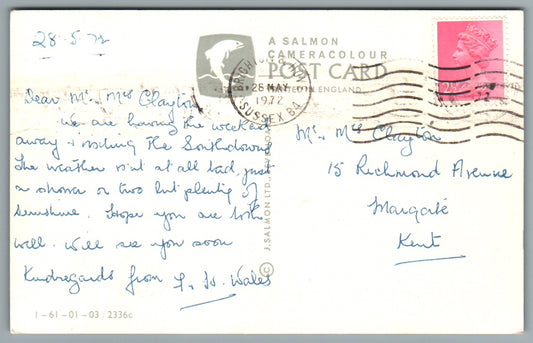 28-5-72
A SALMON
CAMERACOLOUR
POST CARD
PRINTED IN ENGLAND
BRIGHTON &
28 MAY
1972
SUSSEX BA
Dear Mr. Mrs Clayton
We are having the weekend
away & visiting the Southdowns
The weather isn't at all bad, just
a shower or two but plenty of
sunshine. Hope you are both
well. Will see you soon
Kindregards from J. W. Wales
Mr. Mrs Clayton
15 Richmond Avenue
Margate
Kent
© J. SALMON LTD., SEVENOAKS
1-61-01-03 2336c